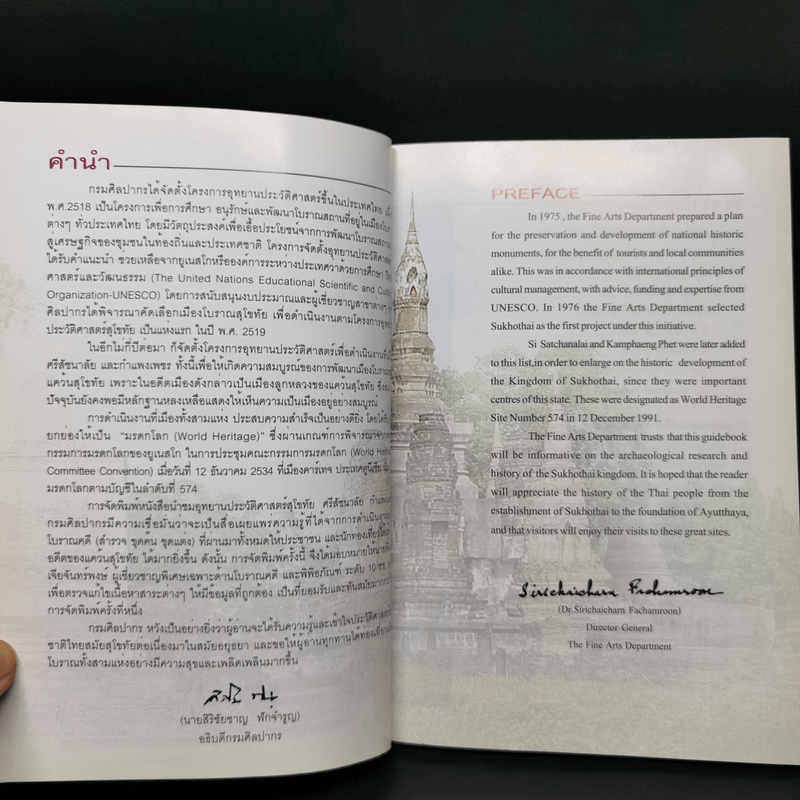 คำนำ
กรมศิลปากรได้จัดตั้งโครงการอุทยานประวัติศาสตร์ขึ้นในประเทศไทย
พ.ศ.2518 เป็นโครงการเพื่อการศึกษา อนุรักษ์และพัฒนาโบราณสถานที่อยู่ในเมืองโบราณ
ต่างๆ ทั่วประเทศไทย โดยมีวัตถุประสงค์เพื่อเอื้อประโยชน์จากการพัฒนาโบราณสถาน
สู่เศรษฐกิจของชุมชนในท้องถิ่นและประเทศชาติ โครงการจัดตั้งอุทยานประวัติศาสตร์
ได้รับคำแนะนำ ช่วยเหลือจากยูเนสโกหรือองค์การระหว่างประเทศว่าด้วยการศึกษา
ศาสตร์และวัฒนธรรม (The United Nations Educational Scientific and
Organization-UNESCO) โดยการสนับสนุนงบประมาณและผู้เชี่ยวชาญสาขาต่างๆ
ศิลปากรได้พิจารณาคัดเลือกเมืองโบราณสุโขทัย เพื่อดำเนินงานตามโครงการอุทยาน
ประวัติศาสตร์สุโขทัย เป็นแห่งแรก ในปี พ.ศ. 2519
ในอีกไม่กี่ปีต่อมา ก็จัดตั้งโครงการอุทยานประวัติศาสตร์เพื่อดำเนินงานที่
ศรีสัชนาลัย และกำแพงเพชร ทั้งนี้เพื่อให้เกิดความสมบูรณ์ของการพัฒนาเมืองโบราณ
แคว้นสุโขทัย เพราะในอดีตเมืองดังกล่าวเป็นเมืองลูกหลวงของแคว้นสุโขทัย
ปัจจุบันยังคงพอมีหลักฐานหลงเหลือแสดงให้เห็นความเป็นเมืองอยู่อย่างสมบูรณ์
การดำเนินงานที่เมืองทั้งสามแห่ง ประสบความสำเร็จเป็นอย่างดียิ่ง
ยกย่องให้เป็น "มรดกโลก (World Heritage)" ซึ่งผ่านเกณฑ์การพิจารณาจาก
กรรมการมรดกโลกของยูเนสโก ในการประชุมคณะกรรมการมรดกโลก (World
Committee Convention) เมื่อวันที่ 12 ธันวาคม 2534 ที่เมืองคาร์เทจ ประเทศตูนีเซีย
มรดกโลกตามบัญชีในลำดับที่ 574
การจัดพิมพ์หนังสือนำชมอุทยานประวัติศาสตร์สุโขทัย ศรีสัชนาลัย
กรมศิลปากรมีความเชื่อมั่นว่าจะเป็นสื่อเผยแพร่ความรู้ที่ได้จากการดำเนินงาน
โบราณคดี (สำรวจ ขุดค้น ขุดแต่ง) ที่ผ่านมาทั้งหมดให้ประชาชน และนักท่องเที่ยวได้
อดีตของแคว้นสุโขทัย ได้มากยิ่งขึ้น ดังนั้น การจัดพิมพ์ครั้งนี้ จึงได้มอบหมายให้
เจียจันทร์พงษ์ ผู้เชี่ยวชาญพิเศษเฉพาะด้านโบราณคดี และพิพิธภัณฑ์ ระดับ 10
เพื่อตรวจแก้ไขเนื้อหาสาระต่างๆ ให้มีข้อมูลที่ถูกต้อง เป็นที่ยอมรับและทันสมัย
การจัดพิมพ์ครั้งที่หนึ่ง
กรมศิลปากร หวังเป็นอย่างยิ่งว่าผู้อ่านจะได้รับความรู้และเข้าใจประวัติศาสตร์
ชาติไทยสมัยสุโขทัยต่อเนื่องมาในสมัยอยุธยา และขอให้ผู้อ่านทุกท่านได้ท่องเที่ยว
โบราณทั้งสามแห่งอย่างมีความสุขและเพลิดเพลินมากขึ้น
(นายสิริชัยชาญ ฟักจำรูญ)
อธิบดีกรมศิลปากร
PREFACE
In 1975 , the Fine Arts Department prepared a plan
for the preservation and development of national historic
monuments, for the benefit of tourists and local communities
alike. This was in accordance with international principles of
cultural management, with advice, funding and expertise from
UNESCO. In 1976 the Fine Arts Department selected
Sukhothai as the first project under this initiative.
Si Satchanalai and Kamphaeng Phet were later added
to this list,in order to enlarge on the historic development of
the Kingdom of Sukhothai, since they were important
centres of this state. These were designated as World Heritage
Site Number 574 in 12 December 1991.
The Fine Arts Department trusts that this guidebook
will be informative on the archaeological research and
history of the Sukhothai kingdom. It is hoped that the reader
will appreciate the history of the Thai people from the
establishment of Sukhothai to the foundation of Ayutthaya,
and that visitors will enjoy their visits to these great sites.
Sirichaicharn Fachamroon
(Dr.Sirichaicharn Fachamroon)
Director General
The Fine Arts Department